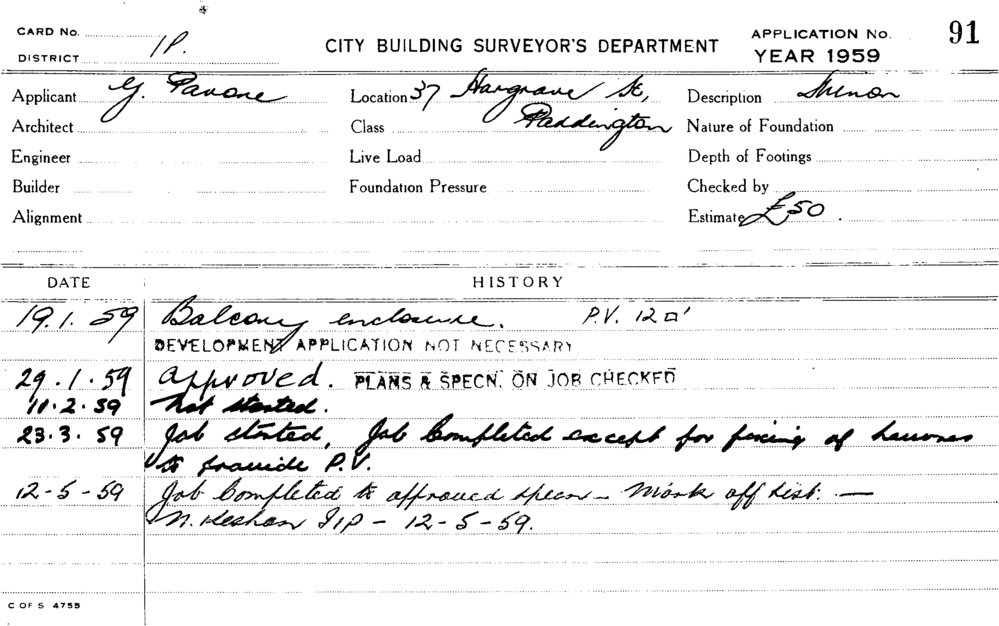 CARD No.
DISTRICT 1P.
CITY BUILDING SURVEYOR'S DEPARTMENT
APPLICATION No. 91
YEAR 1959
Applicant G. Pavone
Location 37 Hargrave St,
Paddington
Description
Architect
Class
Nature of Foundation
Engineer
Live Load
Depth of Footings
Builder
Foundation Pressure
Checked by
Alignment
Estimate £50.
DATE HISTORY
19.1.59 Balcony enclosure. P.V. 12□'
DEVELOPMENT APPLICATION NOT NECESSARY
29.1.59 Approved. PLANS & SPECN. ON JOB CHECKED
11.2.59 Not started.
23.3.59 Job started, Job Completed except for fixing of louvres
to provide P.V.
12-5-59 Job Completed to approved specn - Mark off list. —
12-5-59.
C OF S 4755